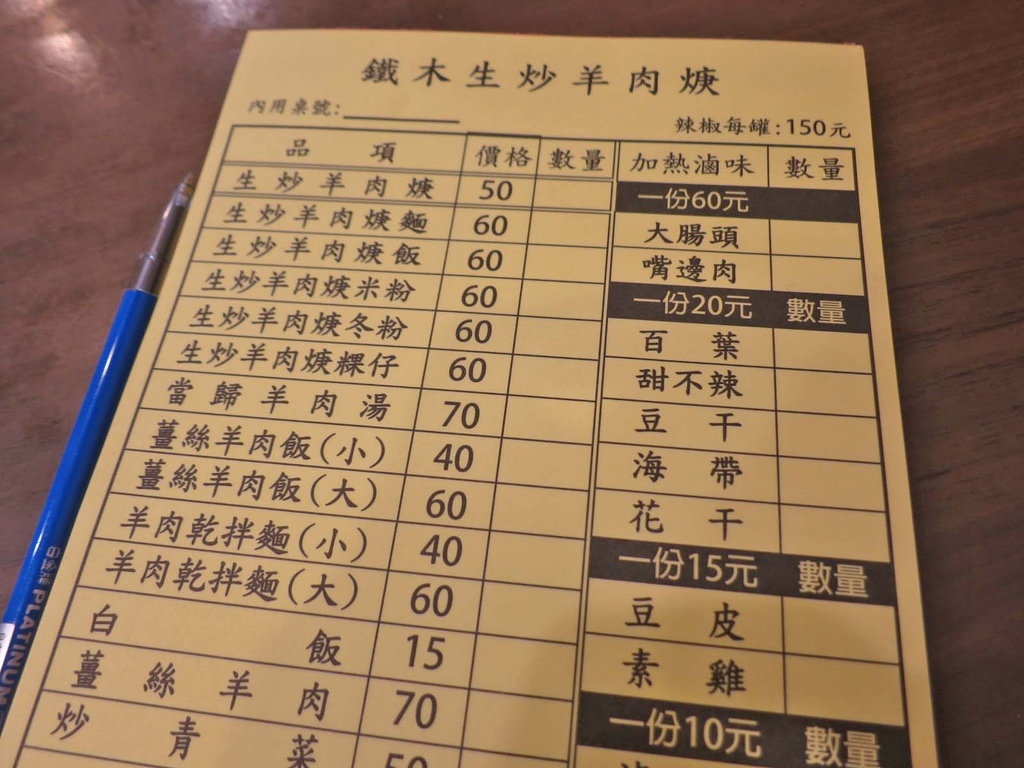 鐵木生炒羊肉焿
內用桌號:
辣椒每罐:150元
品項 價格 數量
生炒羊肉焿 50
生炒羊肉焿麵 60
生炒羊肉焿飯 60
生炒羊肉焿米粉 60
生炒羊肉焿冬粉 60
生炒羊肉焿粿仔 60
當歸羊肉湯 70
薑絲羊肉飯(小) 40
薑絲羊肉飯(大) 60
羊肉乾拌麵(小) 40
羊肉乾拌麵(大) 60
白飯 15
薑絲羊肉 70
炒青菜 50
加熱滷味 數量
一份60元
大腸頭
嘴邊肉
一份20元 數量
百葉
甜不辣
豆干
海帶
花干
一份15元 數量
豆皮
素雞
一份10元 數量
PLATINUM